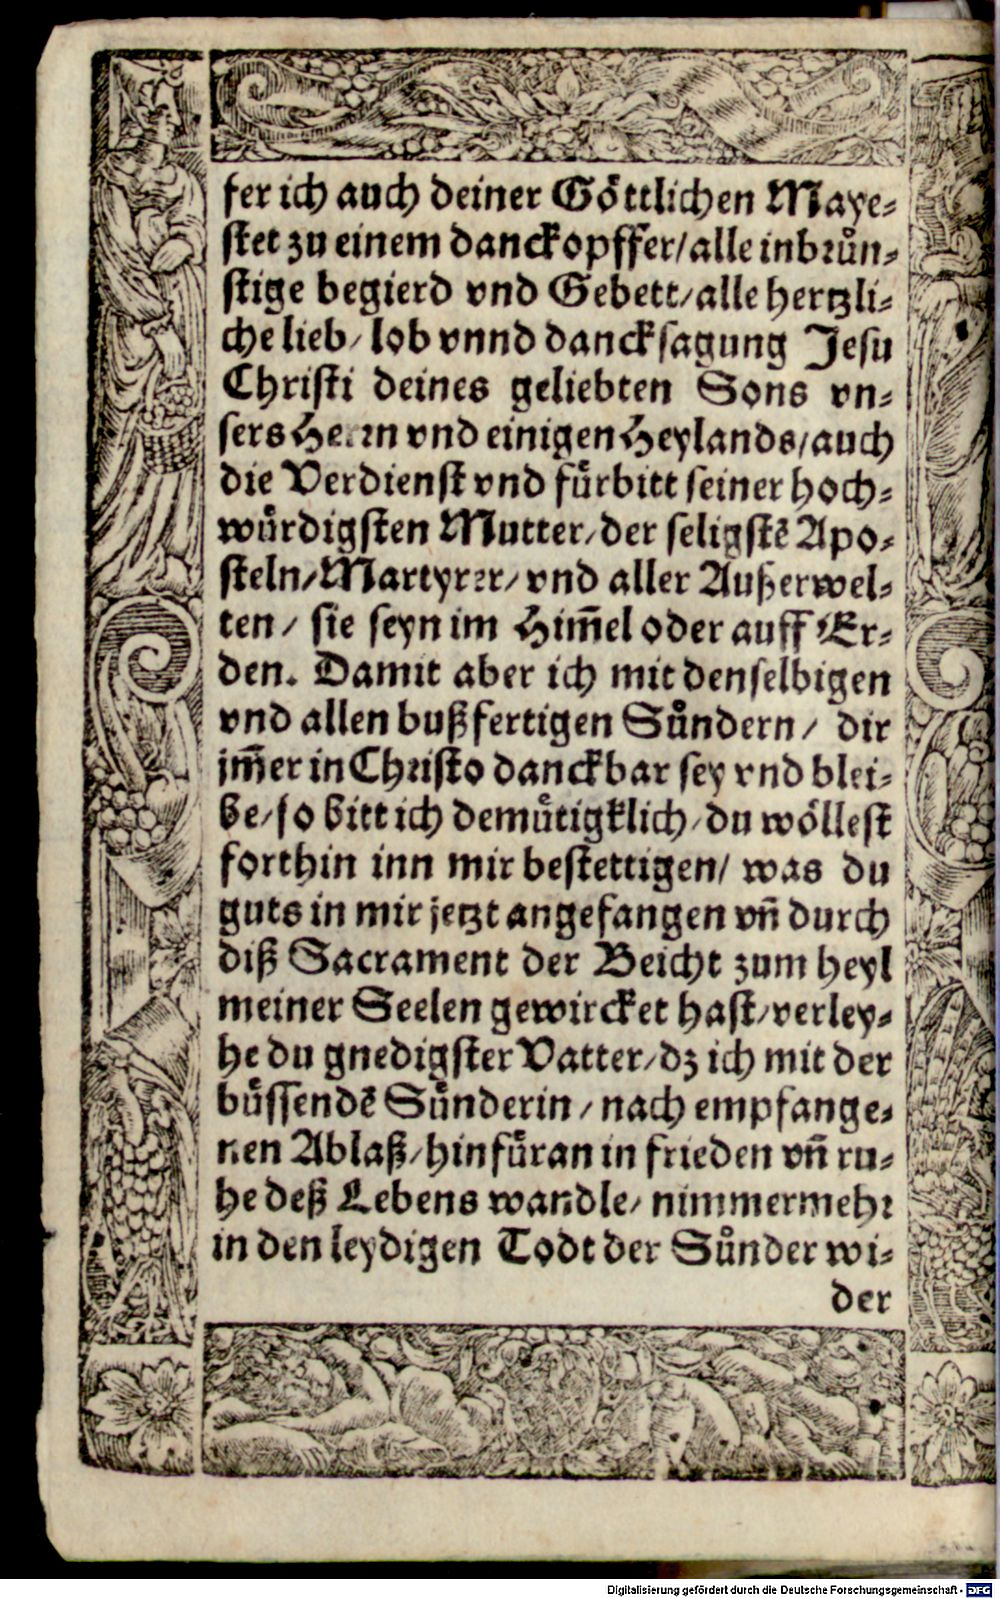 fer ich auch deiner Göttlichen Maye⸗
ſtet zu einem danckopffer/alle inbrůn⸗
ſtige begierd vnd Gebett/alle hertzli⸗
che lieb/ lob vnnd danckſagung Jeſu
Chriſti deines geliebten Sons vn⸗
ſers Herrn vnd einigen Heylands/auch
die Verdienſt vnd fůrbitt ſeiner hoch⸗
wůrdigſten Mutter/der ſeligſtē Apo⸗
ſteln/Martyrer/ vnd aller Außerwel⸗
ten/ ſie ſeyn im Him̄el oder auff Er⸗
den. Damit aber ich mit denſelbigen
vnd allen bußfertigen Sůndern/ dir
jm̄er in Chriſto danckbar ſey vnd blei⸗
be/ſo bitt ich demůtigklich/du wölleſt
forthin inn mir beſtettigen/ was du
guts in mir jetzt angefangen vn̄ durch
diß Sacrament der Beicht zum heyl
meiner Seelen gewircket haſt/verley⸗
he du gnedigſter Vatter/dz ich mit der
bůſſendē Sůnderin/nach empfange⸗
nen Ablaß/hinfůran in frieden vn̄ ru⸗
he deß Lebens wandle/ nimmermehr
in den leydigen Todt der Sůnder wi⸗
der
Digitalisierung gefördert durch die Deutsche Forschungsgemeinschaft - DFG